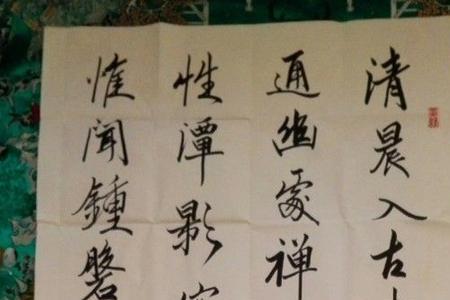 清晨入古
通幽處禅
性潭影
惟聞鍾磬